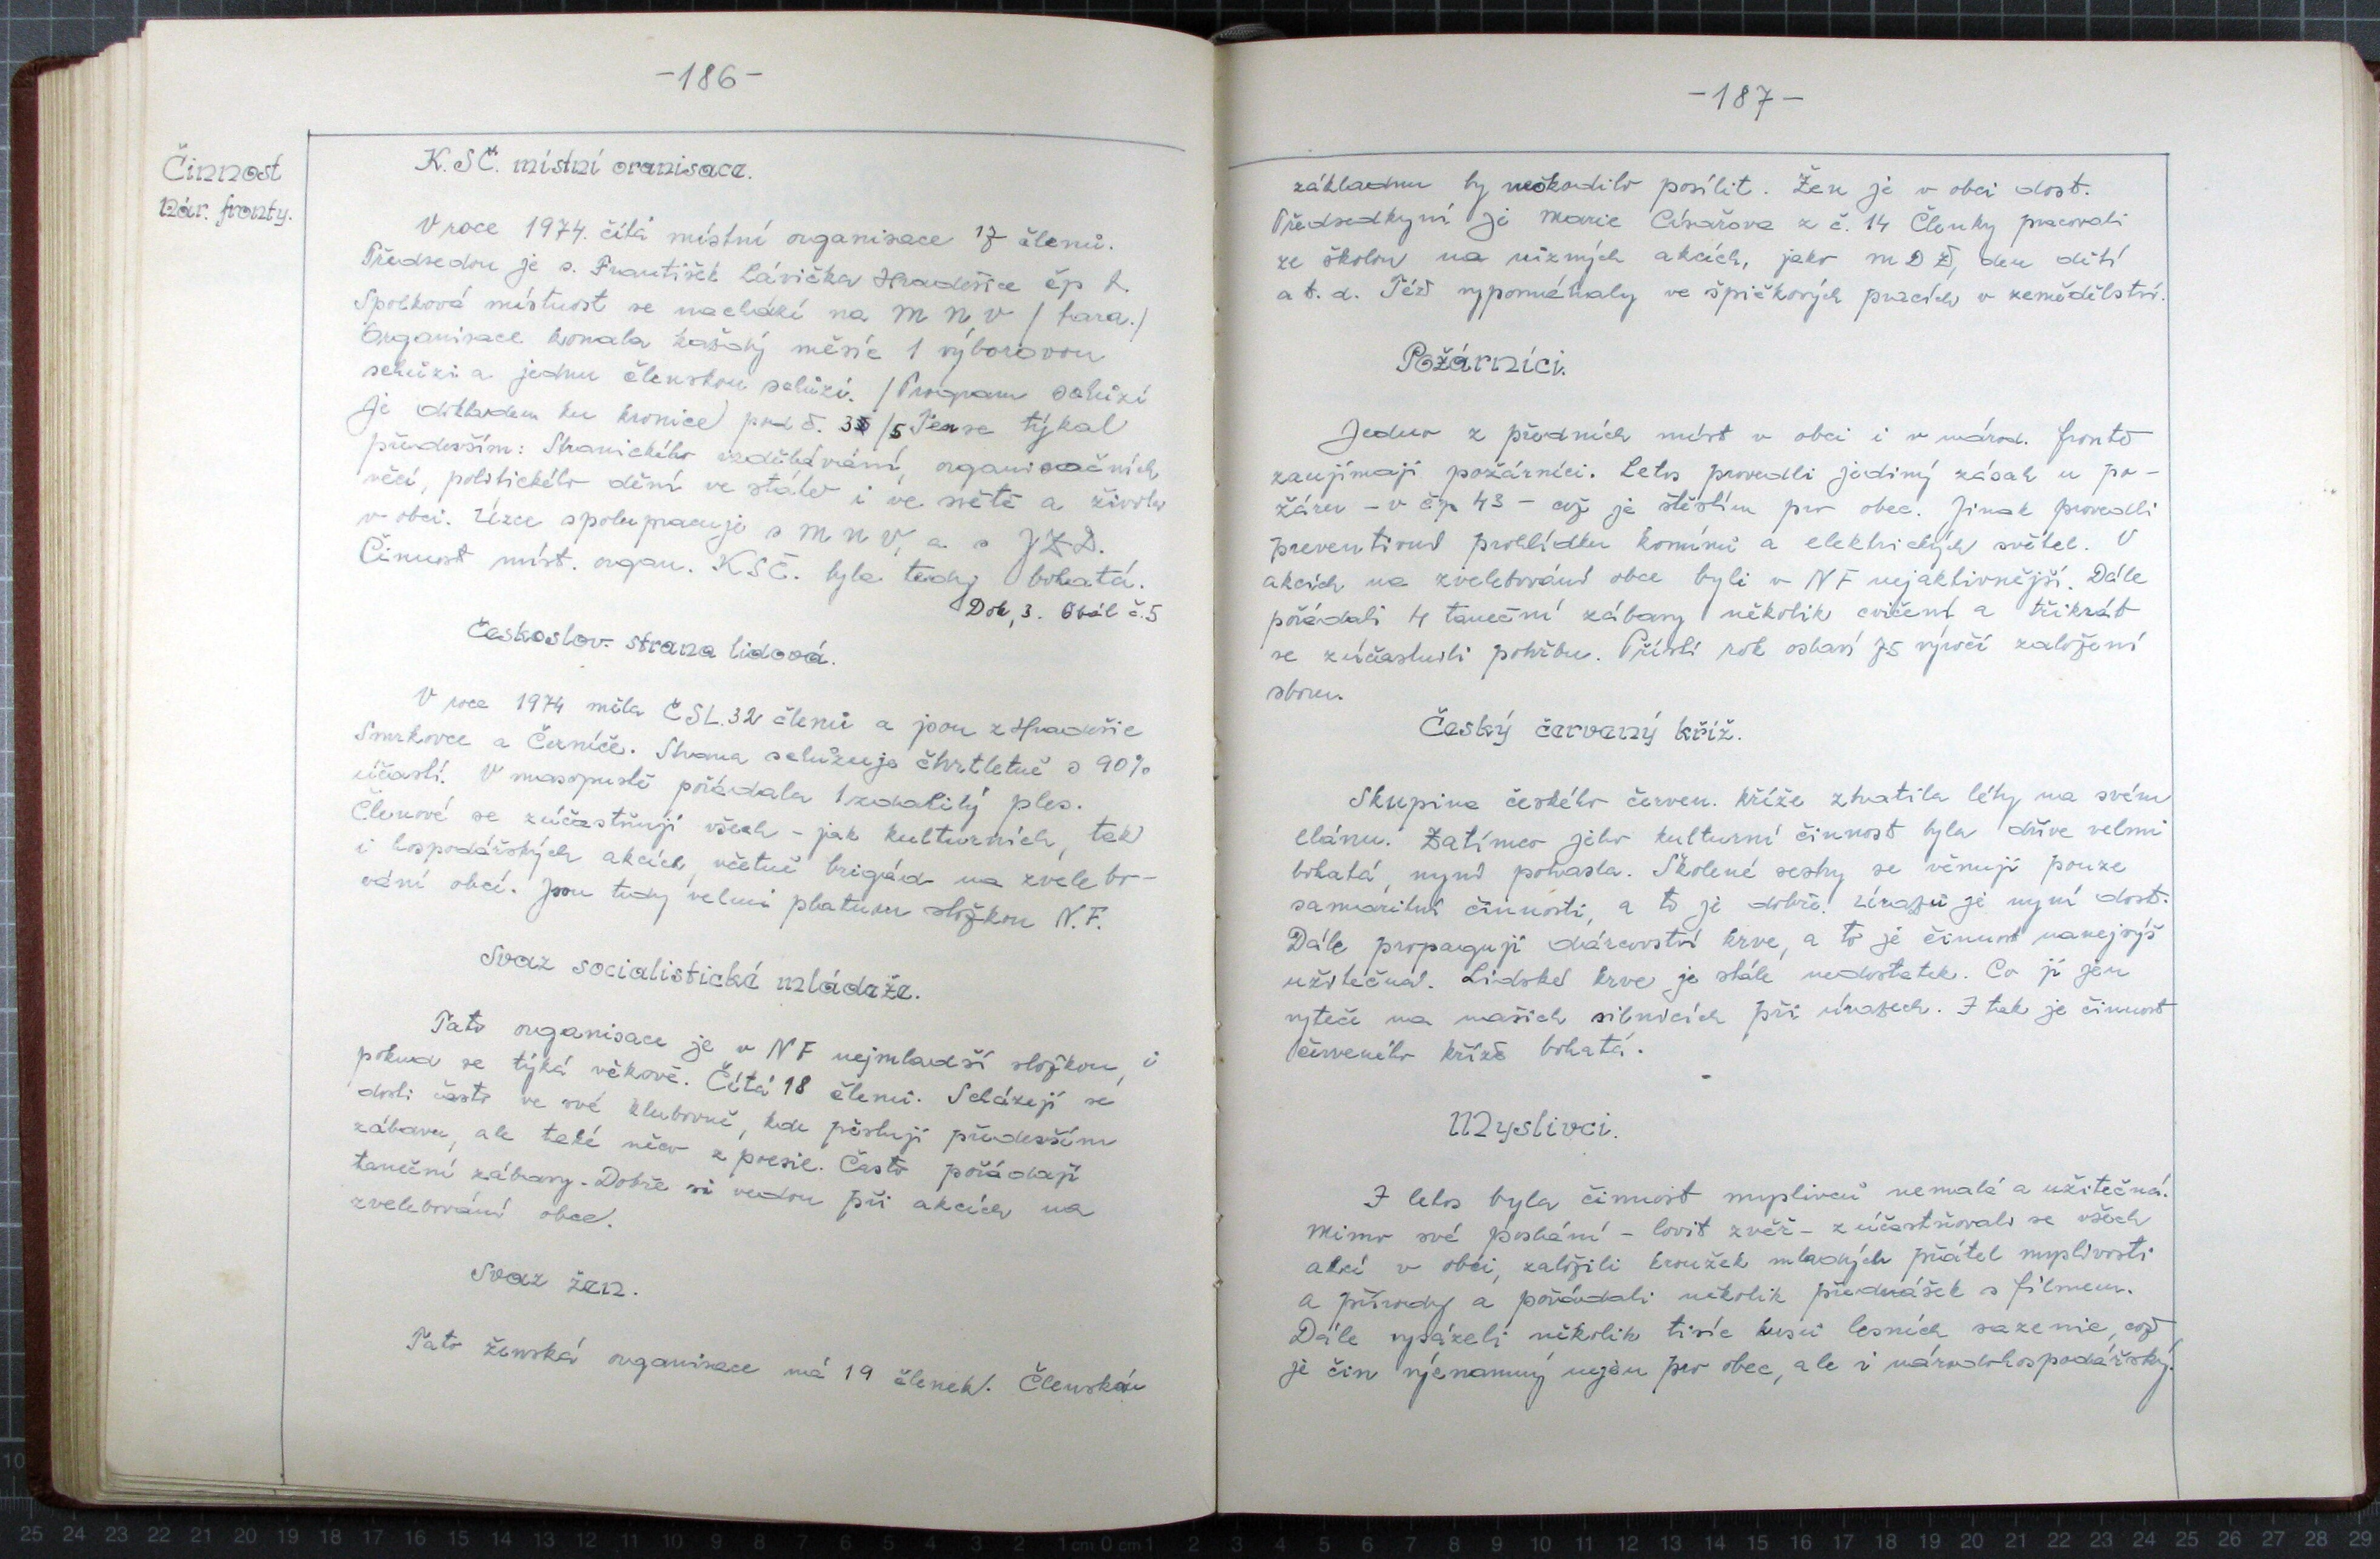 -186-
Činnost
nár. fronty.
K.SČ. místní oranisace.
V roce 1974. čítá místní organisace 17 členů.
Předsedou je s. František Lávička Hradešice čp 2.
Spolková místnost se nachází na M N V / fara./
Organisace konala každý měsíc 1 výborovou
schůzi a jednu členskou schůzi. / Program schůzí
je dokladem ku kronice) pod č. 3 /5 Ten se týkal
především: Stranického vzdělávání, organisačních
věcí, politického dění ve státě i ve světě a života
v obci. Úzce spolupracuje s M N V, a s JZD.
Činnost míst. organ. KSČ. byla tedy bohatá.
Dok, 3. Obál č.5
Českoslov. strana lidová.
V roce 1974 měla ČSL. 32 členů a jsou z Hradešic
Smrkovce a Černíče. Strana schůzuje čtvrtletně s 90%
účastí. V masopustě pořádala 1 zdařilý ples.
Členové se zúčastňují všech - jak kulturních, tak
i hospodářských akcích, včetně brigád na zvelebo-
vání obcí. Jsou tedy velmi platnou složkou N.F.
Svaz socialistické mládeže.
Tato organisace je v NF nejmladší složkou, i
pokud se týká věkově. Čítá 18 členů. Scházejí se
dosti často ve své klubovně, kde pěstují především
zábavu, ale také něco z poesie. Často pořádají
taneční zábavy. Dobře si vedou při akcích na
zvelebování obce.
Svaz žen.
Tato ženská organisace má 19 členek. Členskou
-187-
základnu by neškodilo posílit. Žen je v obci dost.
Předsedkyní je Marie Císařova z č. 14 Členky pracovali
ze školou na různých akcích, jako M D Ž, den dětí
a t. d. Též vypomáhaly ve špičkových pracích v zemědělství.
Požárníci.
Jedno z předních míst v obci i v národ. frontě
zaujímají požárníci. Letos provedli jediný zásah u po-
žáru - v čp 43 - což je štěstím pro obec. Jinak provedli
preventivní prohlídku komínů a elektrických světel. V
akcích na zvelebování obce byli v NF nejaktivnější. Dále
pořádali 4 taneční zábavy několik cvičení a třikrát
se zúčastnili pohřbu. Příští rok oslaví 75 výročí založení
sboru.
Český červený kříž.
Skupina českého červen. kříže ztratila léty na svém
elánu. Zatímco jeho kulturní činnost byla dříve velmi
bohatá, nyní pohasla. Školené sestry se věnují pouze
samaritní činnosti, a to je dobře. Úrazů je nyní dost.
Dále propagují dárcovství krve, a to je činnost nanejvýš
užitečná. Lidské krve je stále nedostatek. Co jí jen
vyteče na našich silnicích při úrazech. I tak je činnost
červeného kříže bohatá.
Myslivci.
I letos byla činnost myslivců nemalá a užitečná.
Mimo své poslání - lovit zvěř - zúčastňovali se všech
akcí v obci, založili kroužek mladých přátel myslivosti
a přírody a pořádali několik přednášek s filmem.
Dále vysázeli několik tisíc kusů lesních sazenic, což
je čin významný nejen pro obec, ale i národohospodářský.